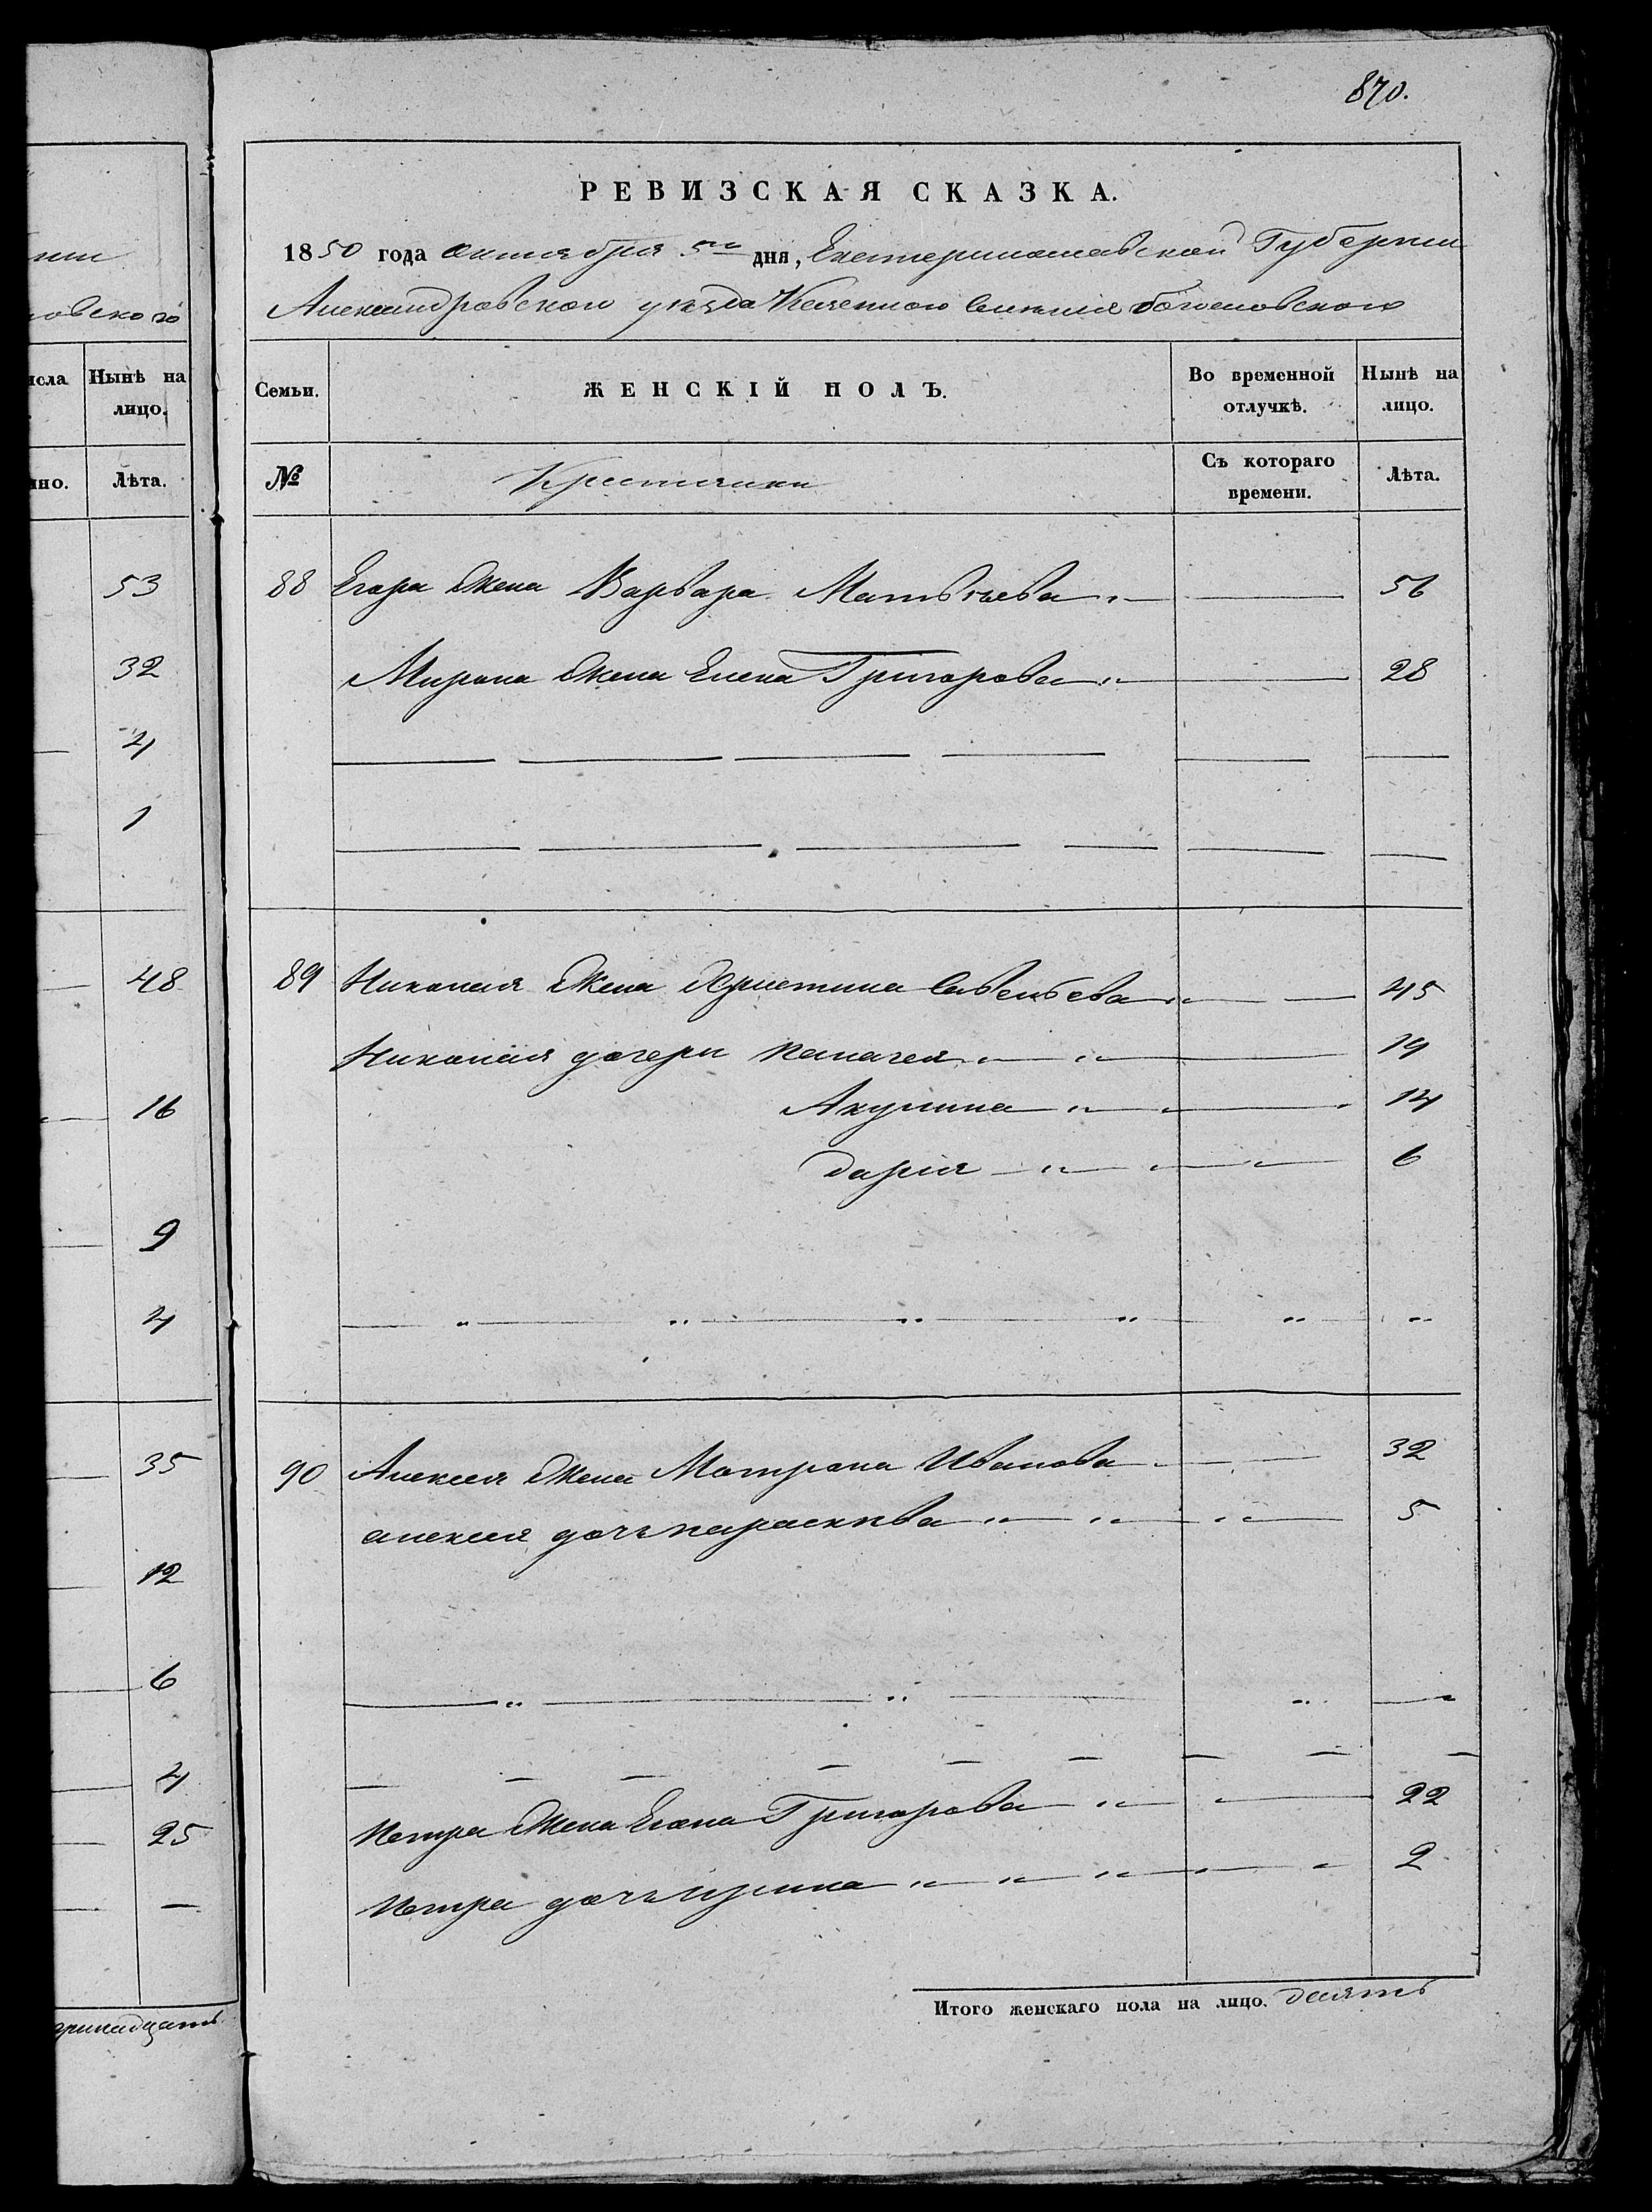 870.
нии
овского
исла
Нынѣ на лицо.
ино.
Лѣта.
53
32
4
1
48
16
9
4
35
12
6
4
25
тринадцать
РЕВИЗСКАЯ СКАЗКА.
1850 года октября 5го дня, Екатеринославской Губернии
Александровского уѣзда Казенного Селения
Семьи.
ЖЕНСКІЙ ПОЛЪ.
Во временной отлучкѣ.
Нынѣ на лицо.
№
Крестьянки
Съ котораго времени.
Лѣта.
88 Егора Жена Варвара Матвѣева 56
Мирона Жена Елена Григорова 28
89 Николая Жена Христина Савельева 45
Николая дочери Палагея 19
Акулина 14
Дарія 6
90 Алексея Жена Матрона Иванова 32
алексея дочь параскива 5
Петра Жена Елена Григорова 22
Петра дочь Ирина 2
Итого женскаго пола на лицо. десять